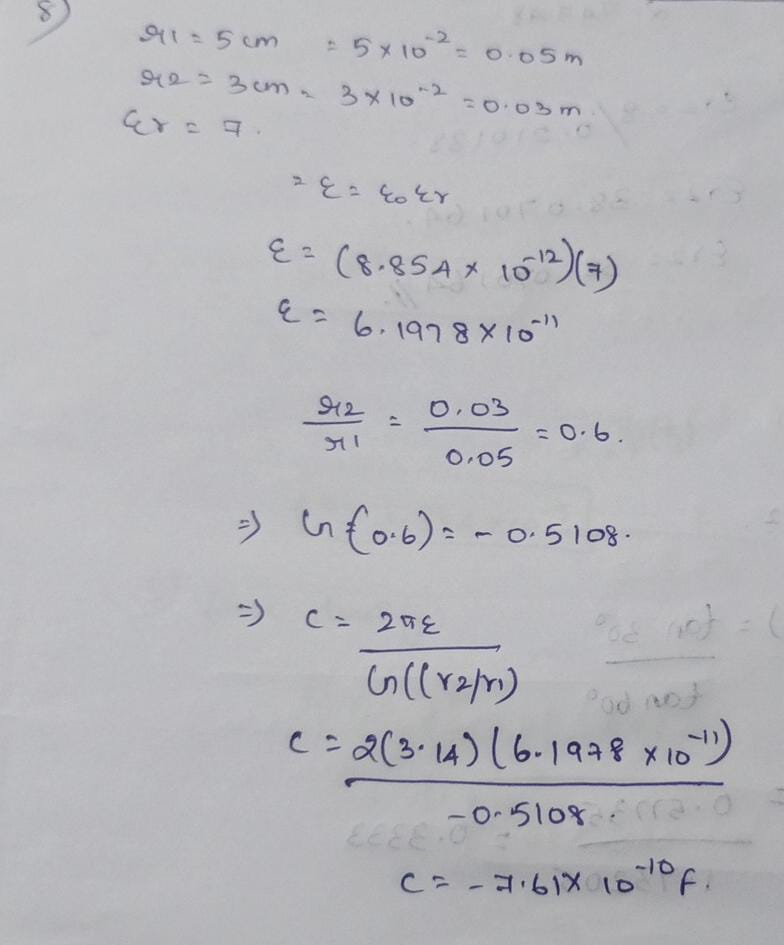 8)
r1 = 5 cm = 5 x 10^-2 = 0.05 m
r2 = 3 cm = 3 x 10^-2 = 0.03 m
εr = 7.
= ε = ε0 εr
ε = (8.854 x 10^-12)(7)
ε = 6.1978 x 10^-11
r2/r1 = 0.03/0.05 = 0.6.
=> ln(0.6) = -0.5108.
=> C = 2πε/ln((r2/r1)
C = 2(3.14)(6.1978 x 10^-11)/-0.5108.
C = -7.61 x 10^-10 F.